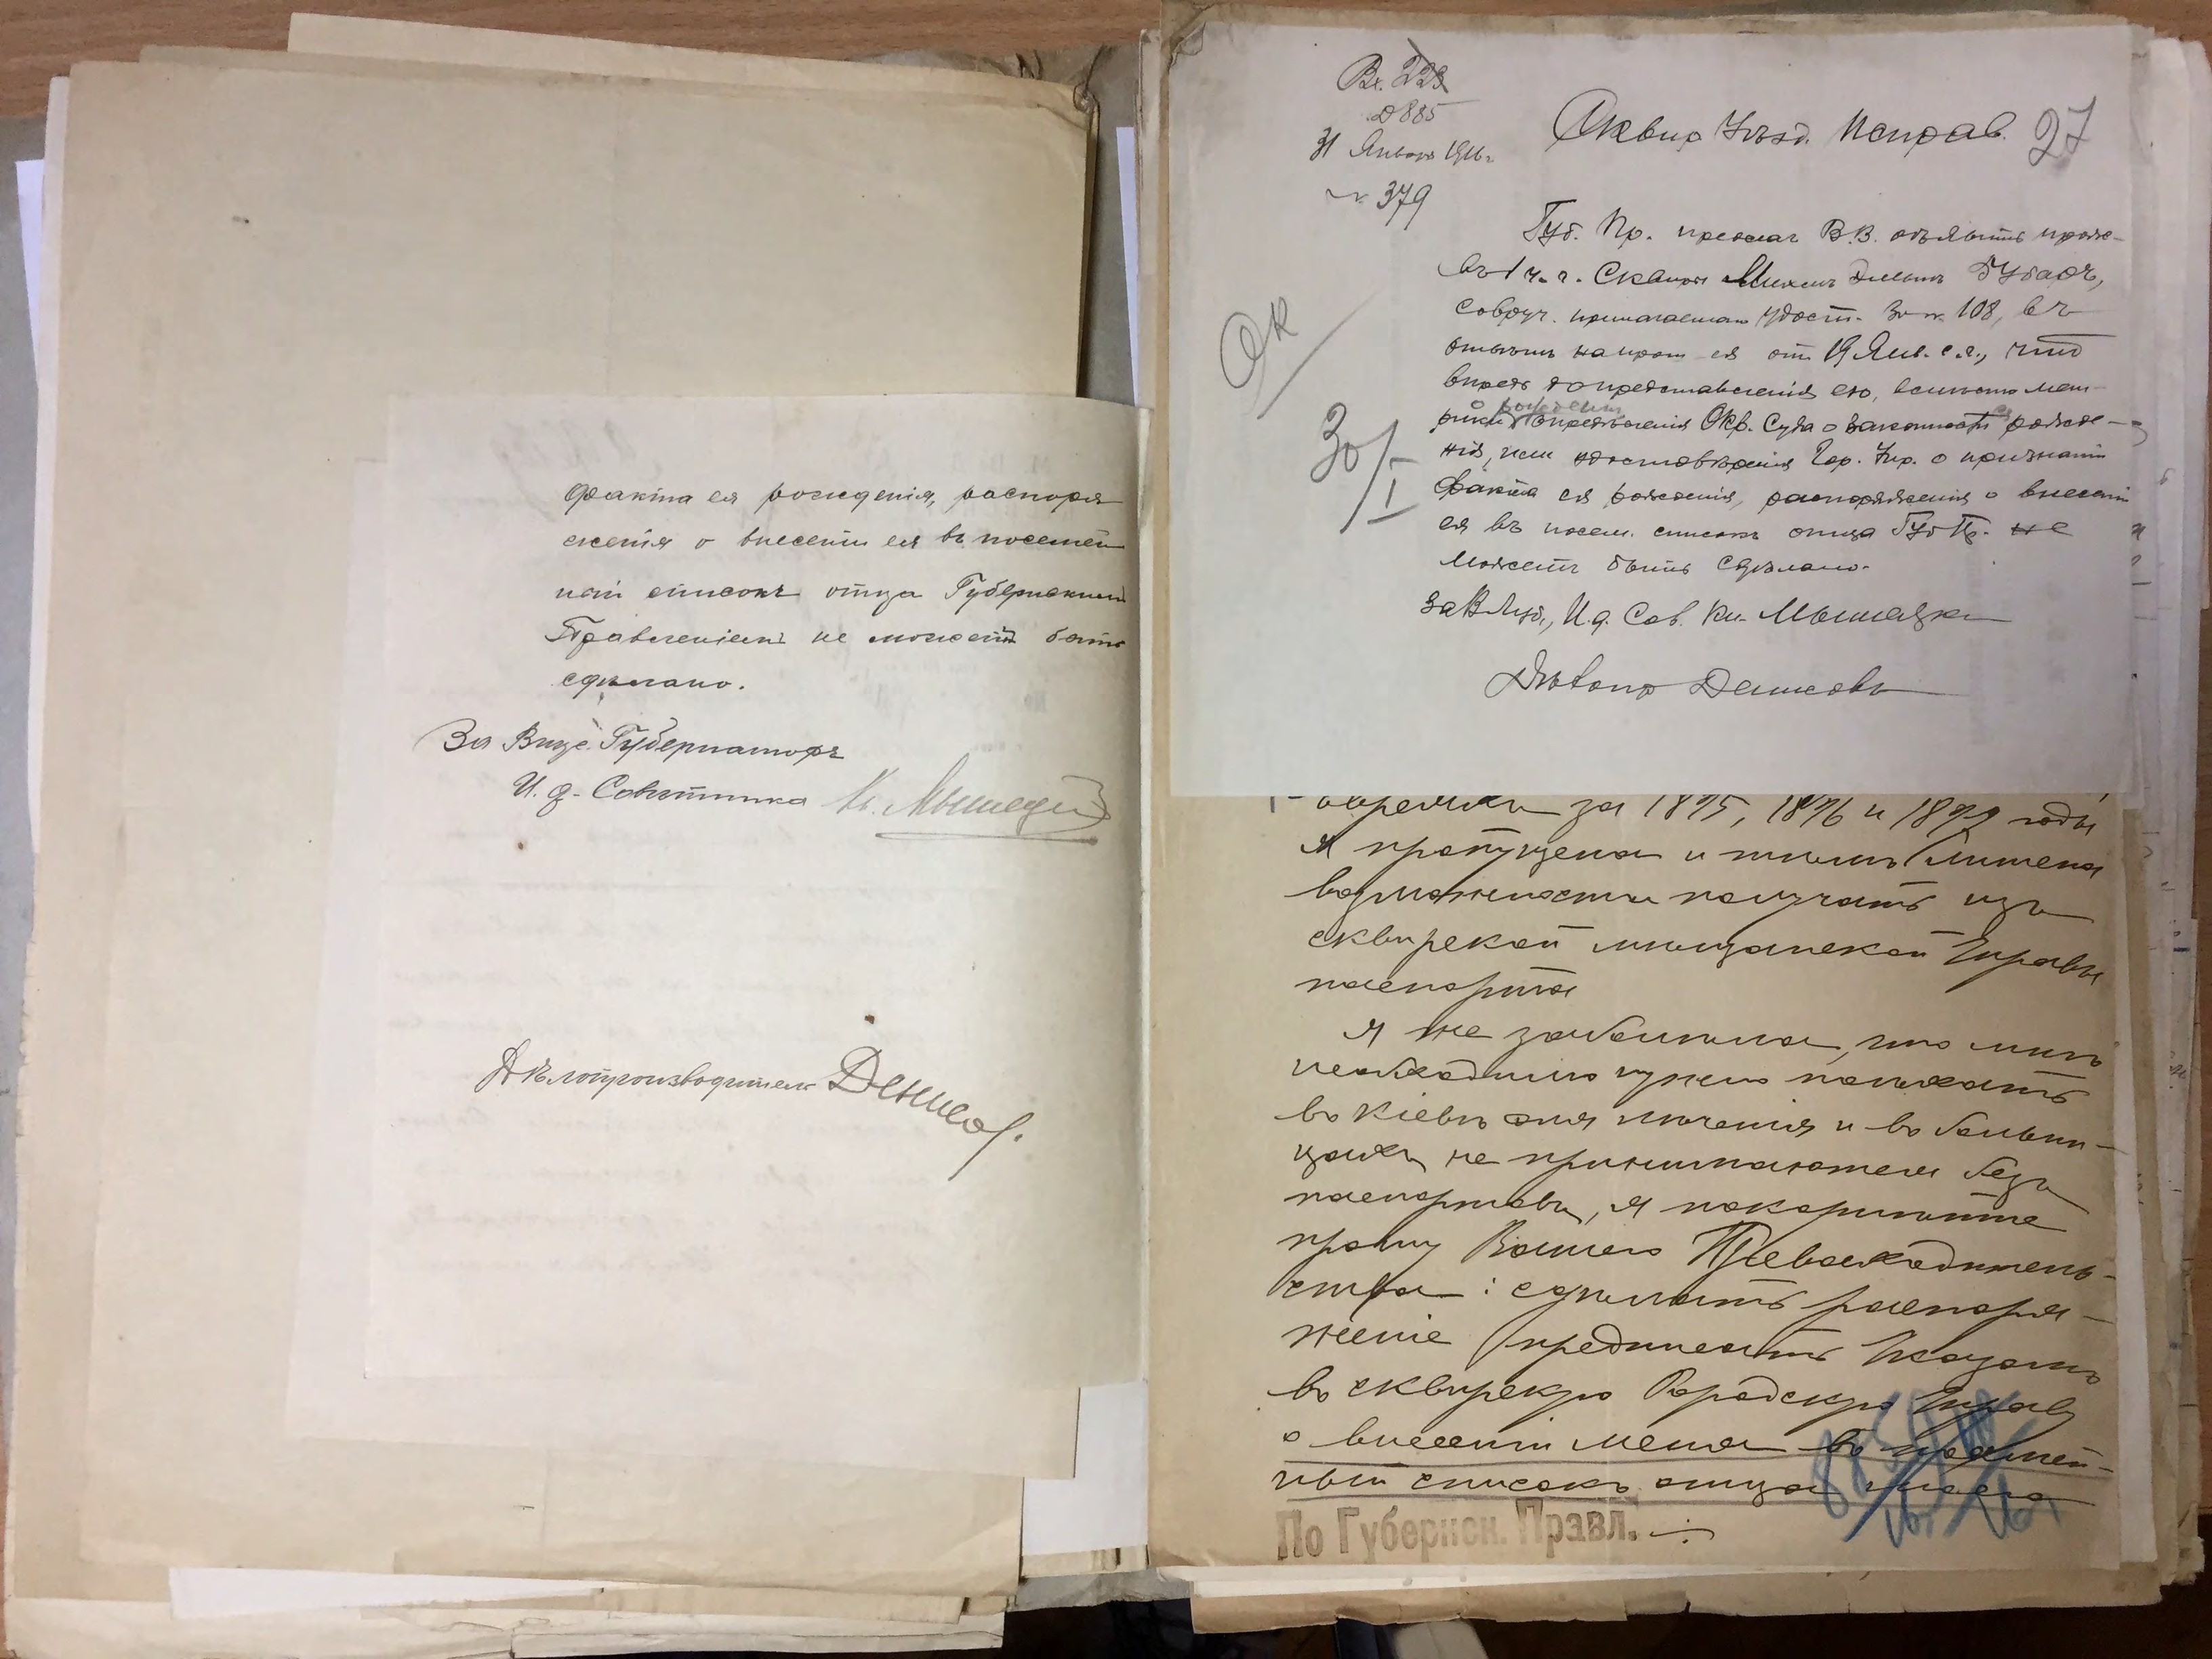 факта ея рожденія, распоря
женія о внесеніи ея въ посемей
ный списокъ отца Губернскимъ
Правленіемъ не можетъ быть
сдѣлано.
За Вице-Губернатора
И. д. Совѣтника Кн. Мышецкій
Дѣлопроизводитель Денисов.
Вх. 223
2885
31 Января 1916 г.
№ 379
Сквир Уѣзд. Исправ. 27
Губ. Пр. предлаг В.В. объявить прож-
въ г. Сквирѣ
соврүч. прилагаемаго удост. за № 108, въ
отвѣтъ на прош ея отъ 19 Янв. с.г., что
впредь до представленія ею, вмѣсто мет-
рики о рожденіи опредѣленія Окр. Суда о законности рожде-
нія, или удостовѣренія Гор. Упр. о признаніи
факта ея рожденія, распоряженія о внесеніи
ея въ посем. списокъ отца Губ Пр. не
можетъ быть сдѣлано.
За В Губ., И.д. Сов. Кн. Мышецкій
Дѣлопр Денисовъ
30/I
за 1895, 1896 и 1897 годы
я пропущена и тѣмъ лишена
возможности получать изъ
сквирской мѣщанской Управы
паспорта
Я же заболѣла, что мнѣ
необходимо нужно поѣхать
въ Кіевъ для леченія и въ больни-
цахъ не принимаютъ безъ
паспортовъ, я покорнѣйше
прошу Вашего Превосходитель-
ства: сдѣлать распоря-
женіе предписать Указомъ
въ сквирскую Городскую Управу
о внесеніи меня въ посемей-
ный списокъ отца моего
По Губернск. Правл.